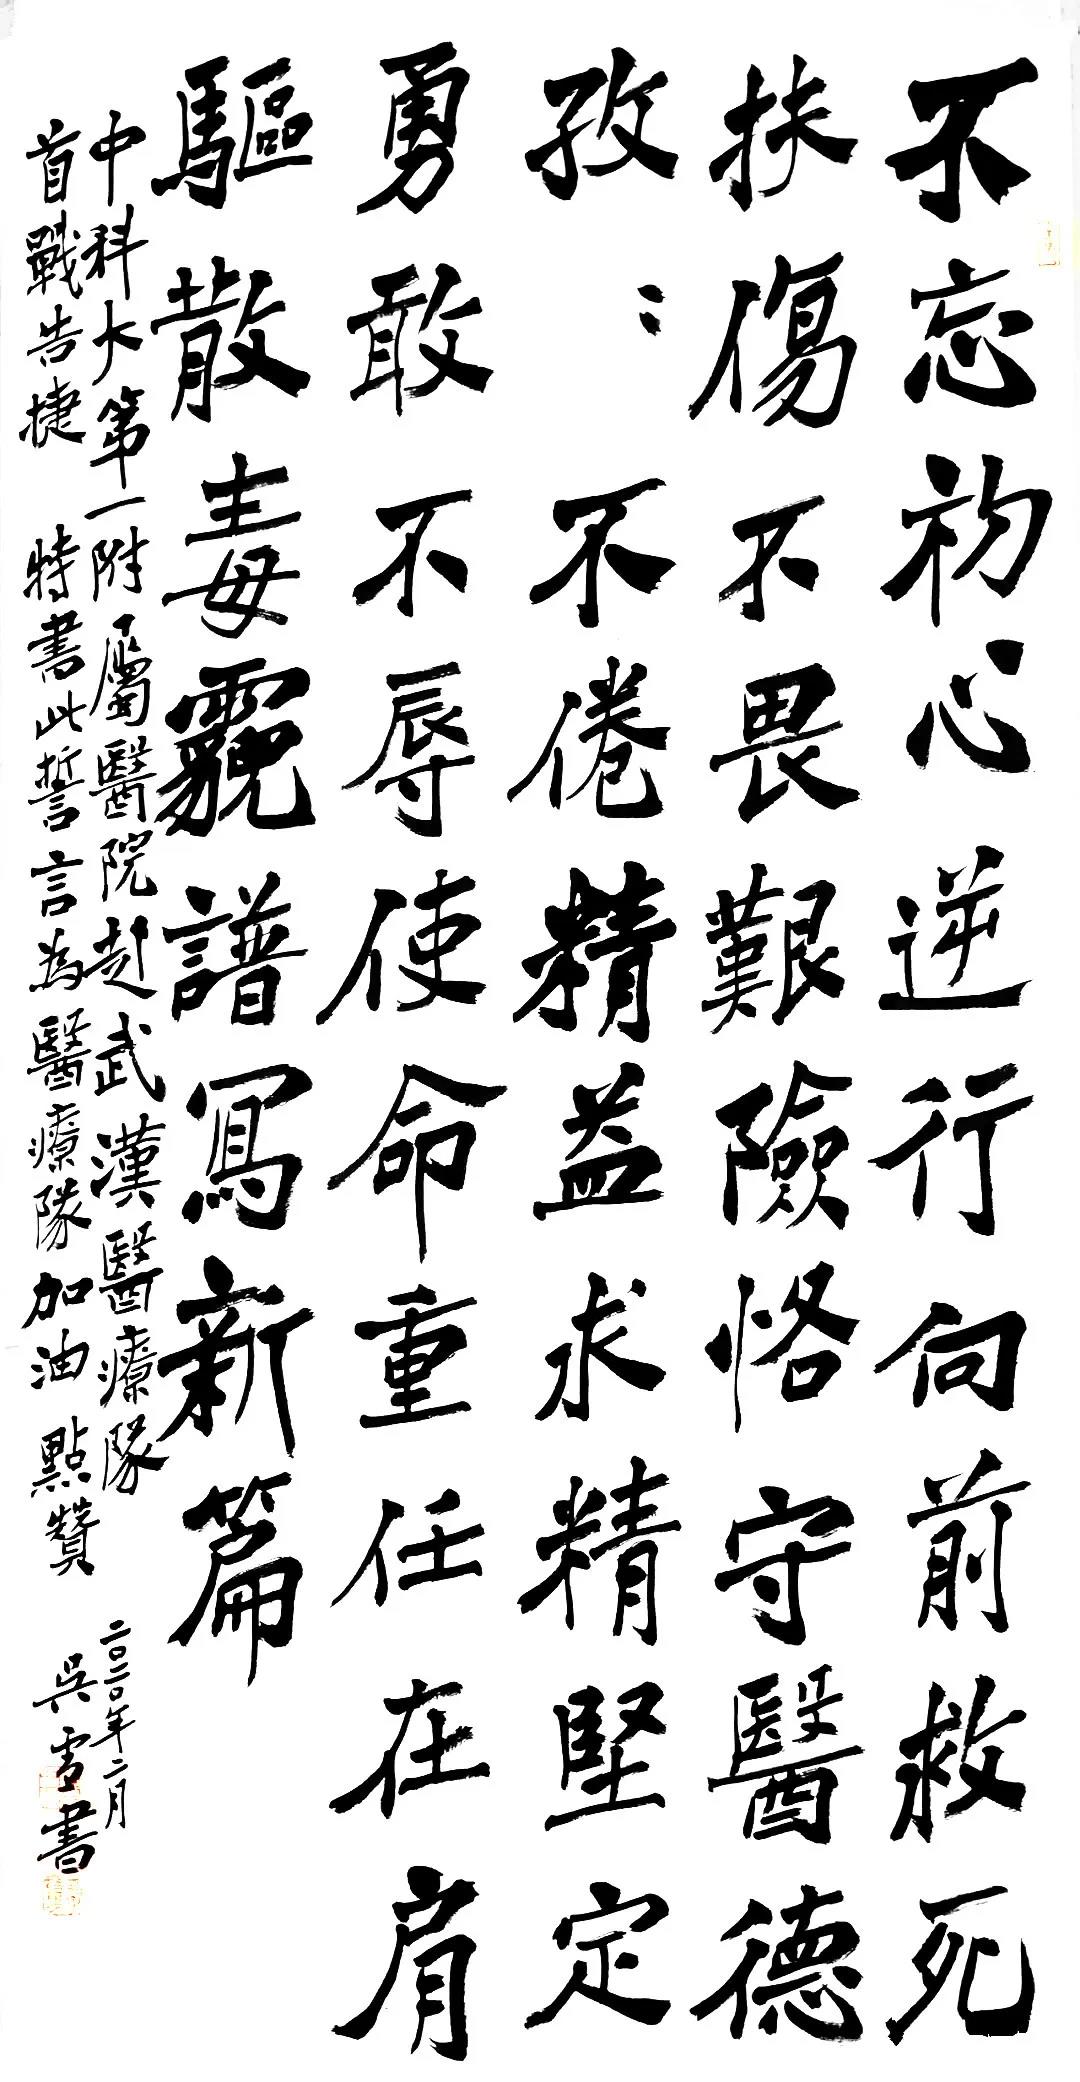 不忘初心逆行向前救死
扶傷不畏艱險恪守醫德
孜〻不倦精益求精堅定
勇敢不辱使命重任在肩
驅散毒霾譜寫新篇
中科大第一附屬醫院赴武漢醫療隊
首戰告捷 特書此誓言為醫療隊加油點贊
二〇二〇年二月
吳雪書